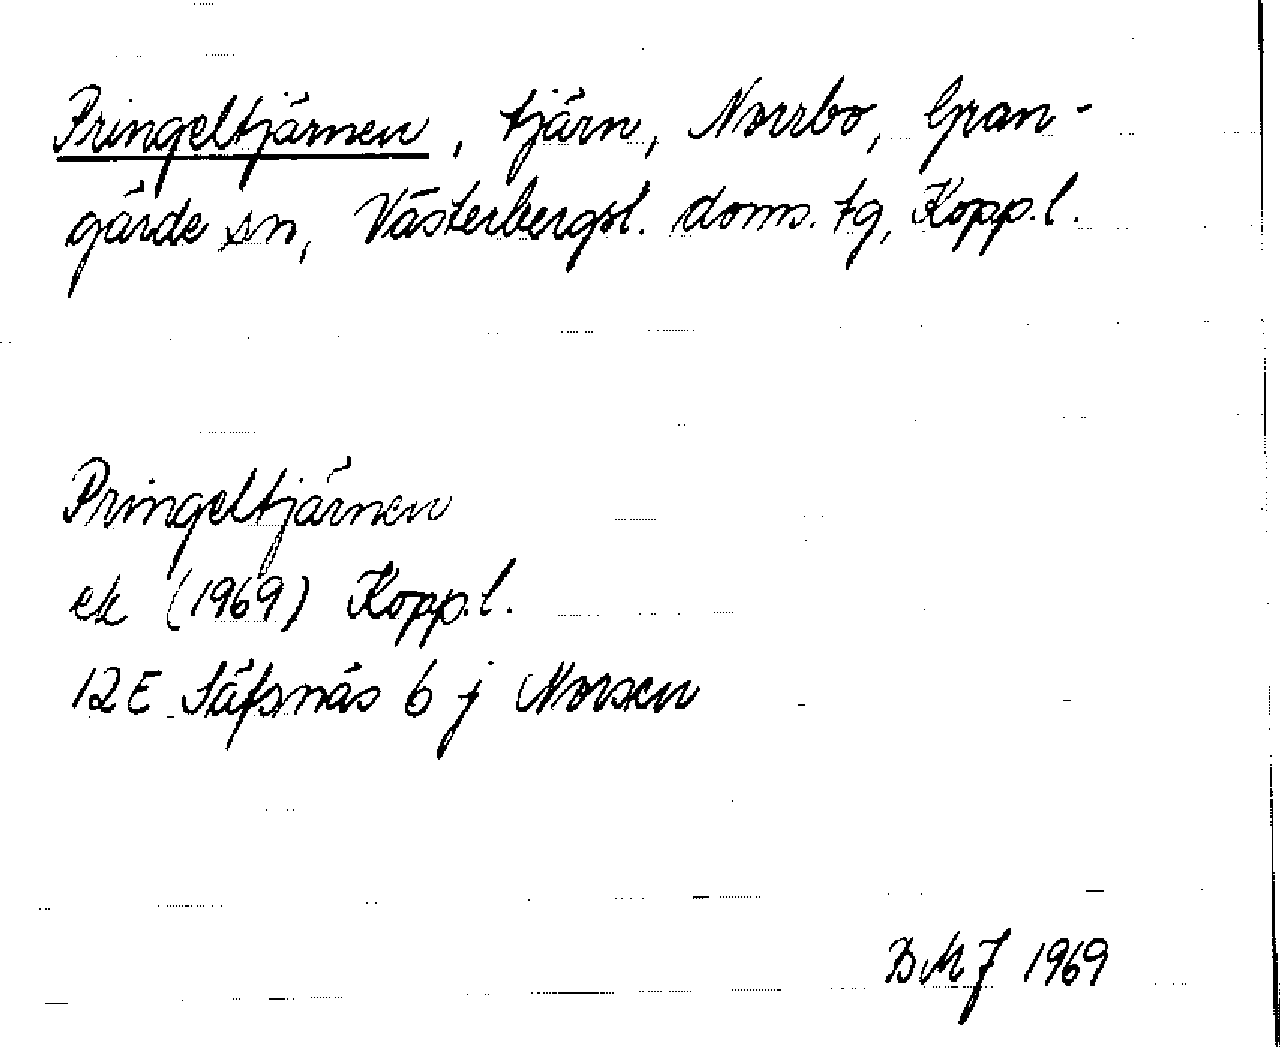 Pringeltjärnen, tjärn, Norrbo, Gran-
gärde sn, Västerbergsl. doms. tg, Kopp.l.
Pringeltjärnen
ek (1969) Kopp.l.
12E Säfsnäs 6 j Norsen
BMJ 1969